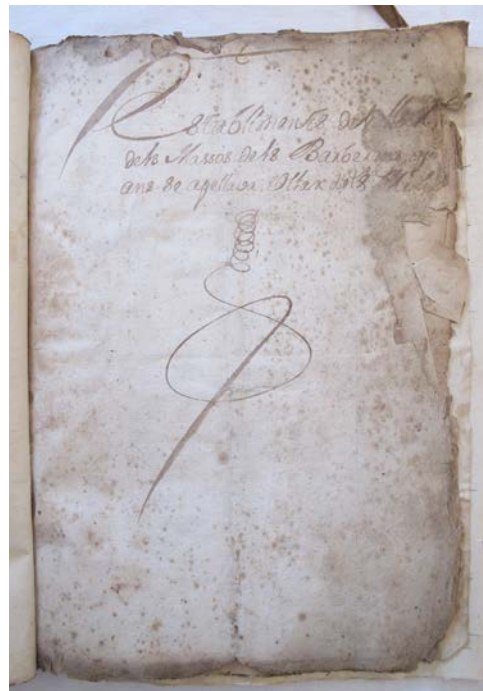 Establimants del
dels Massos dels Barbe
ans se apellava Oller dels